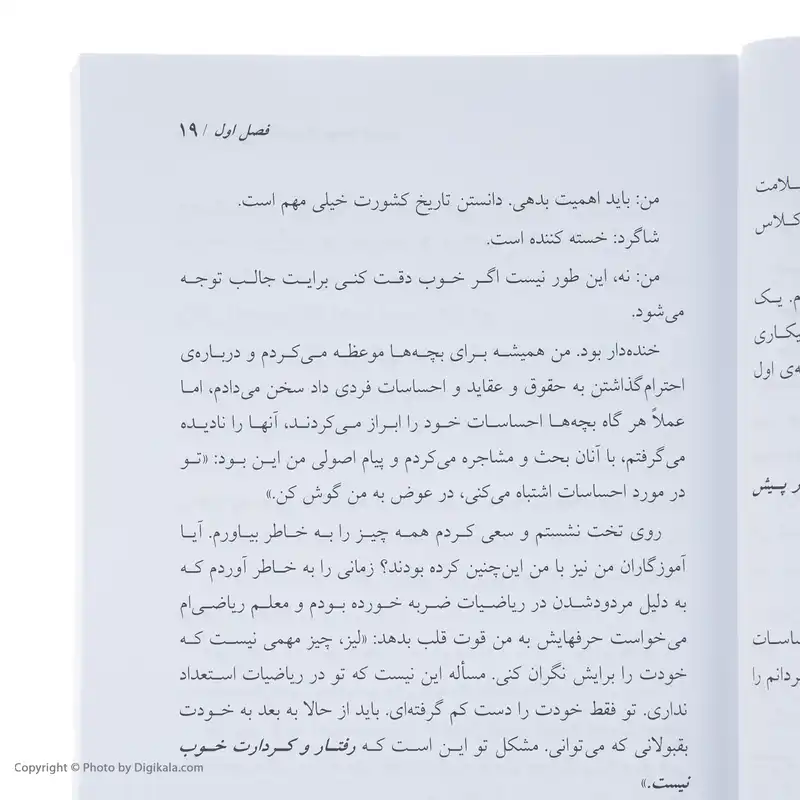 فصل اول / ۱۹
من: باید اهمیت بدهی. دانستن تاریخ کشورت خیلی مهم است.
شاگرد: خسته کننده است.
من: نه، این طور نیست اگر خوب دقت کنی برایت جالب توجه
می‌شود.
خنده‌دار بود. من همیشه برای بچه‌ها موعظه می‌کردم و درباره‌ی
احترام‌گذاشتن به حقوق و عقاید و احساسات فردی داد سخن می‌دادم، اما
عملاً هر گاه بچه‌ها احساسات خود را ابراز می‌کردند، آنها را نادیده
می‌گرفتم، با آنان بحث و مشاجره می‌کردم و پیام اصولی من این بود: «تو
در مورد احساسات اشتباه می‌کنی، در عوض به من گوش کن.»
روی تخت نشستم و سعی کردم همه چیز را به خاطر بیاورم. آیا
آموزگاران من نیز با من این‌چنین کرده بودند؟ زمانی را به خاطر آوردم که
به دلیل مردودشدن در ریاضیات ضربه خورده بودم و معلم ریاضی‌ام
می‌خواست حرفهایش به من قوت قلب بدهد: «لیز، چیز مهمی نیست که
خودت را برایش نگران کنی. مسأله این نیست که تو در ریاضیات استعداد
نداری. تو فقط خودت را دست کم گرفته‌ای. باید از حالا به بعد به خودت
بقبولانی که می‌توانی. مشکل تو این است که رفتار و کردارت خوب
نیست.»
کلاس
م. یک
یکاری
ه‌ی اول
ر پیش
ردانم را
Copyright © Photo by Digikala.com